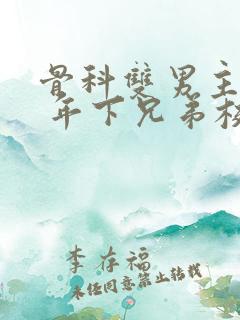 骨科雙男主
年下兄弟校
李存福
未经同意禁止转载